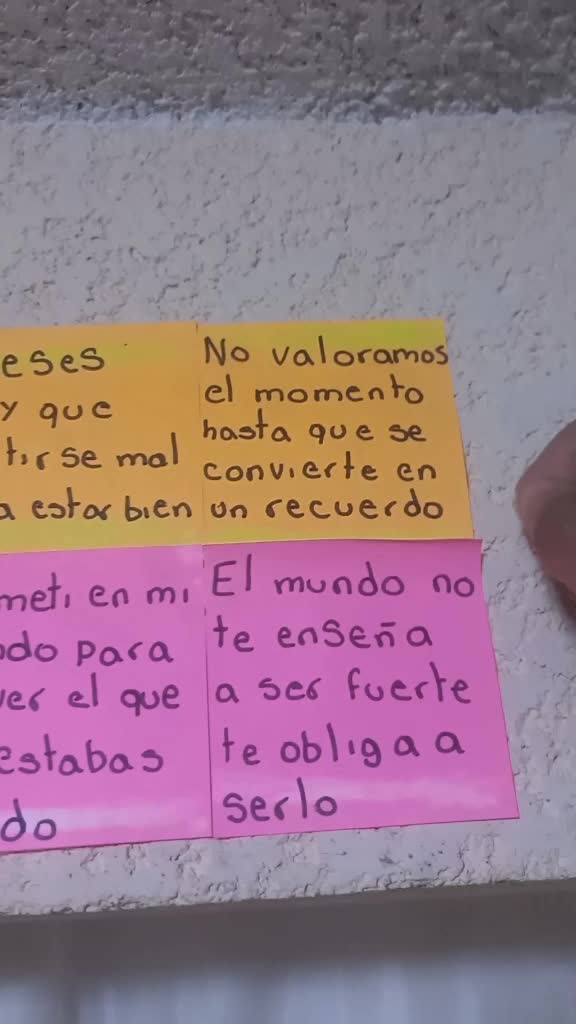 eses
y que
tirse mal
a estar bien
No valoramos
el momento
hasta que se
convierte en
un recuerdo
meti en mi
do para
ver el que
estabas
do
El mundo no
te enseña
a ser fuerte
te obliga a
serlo